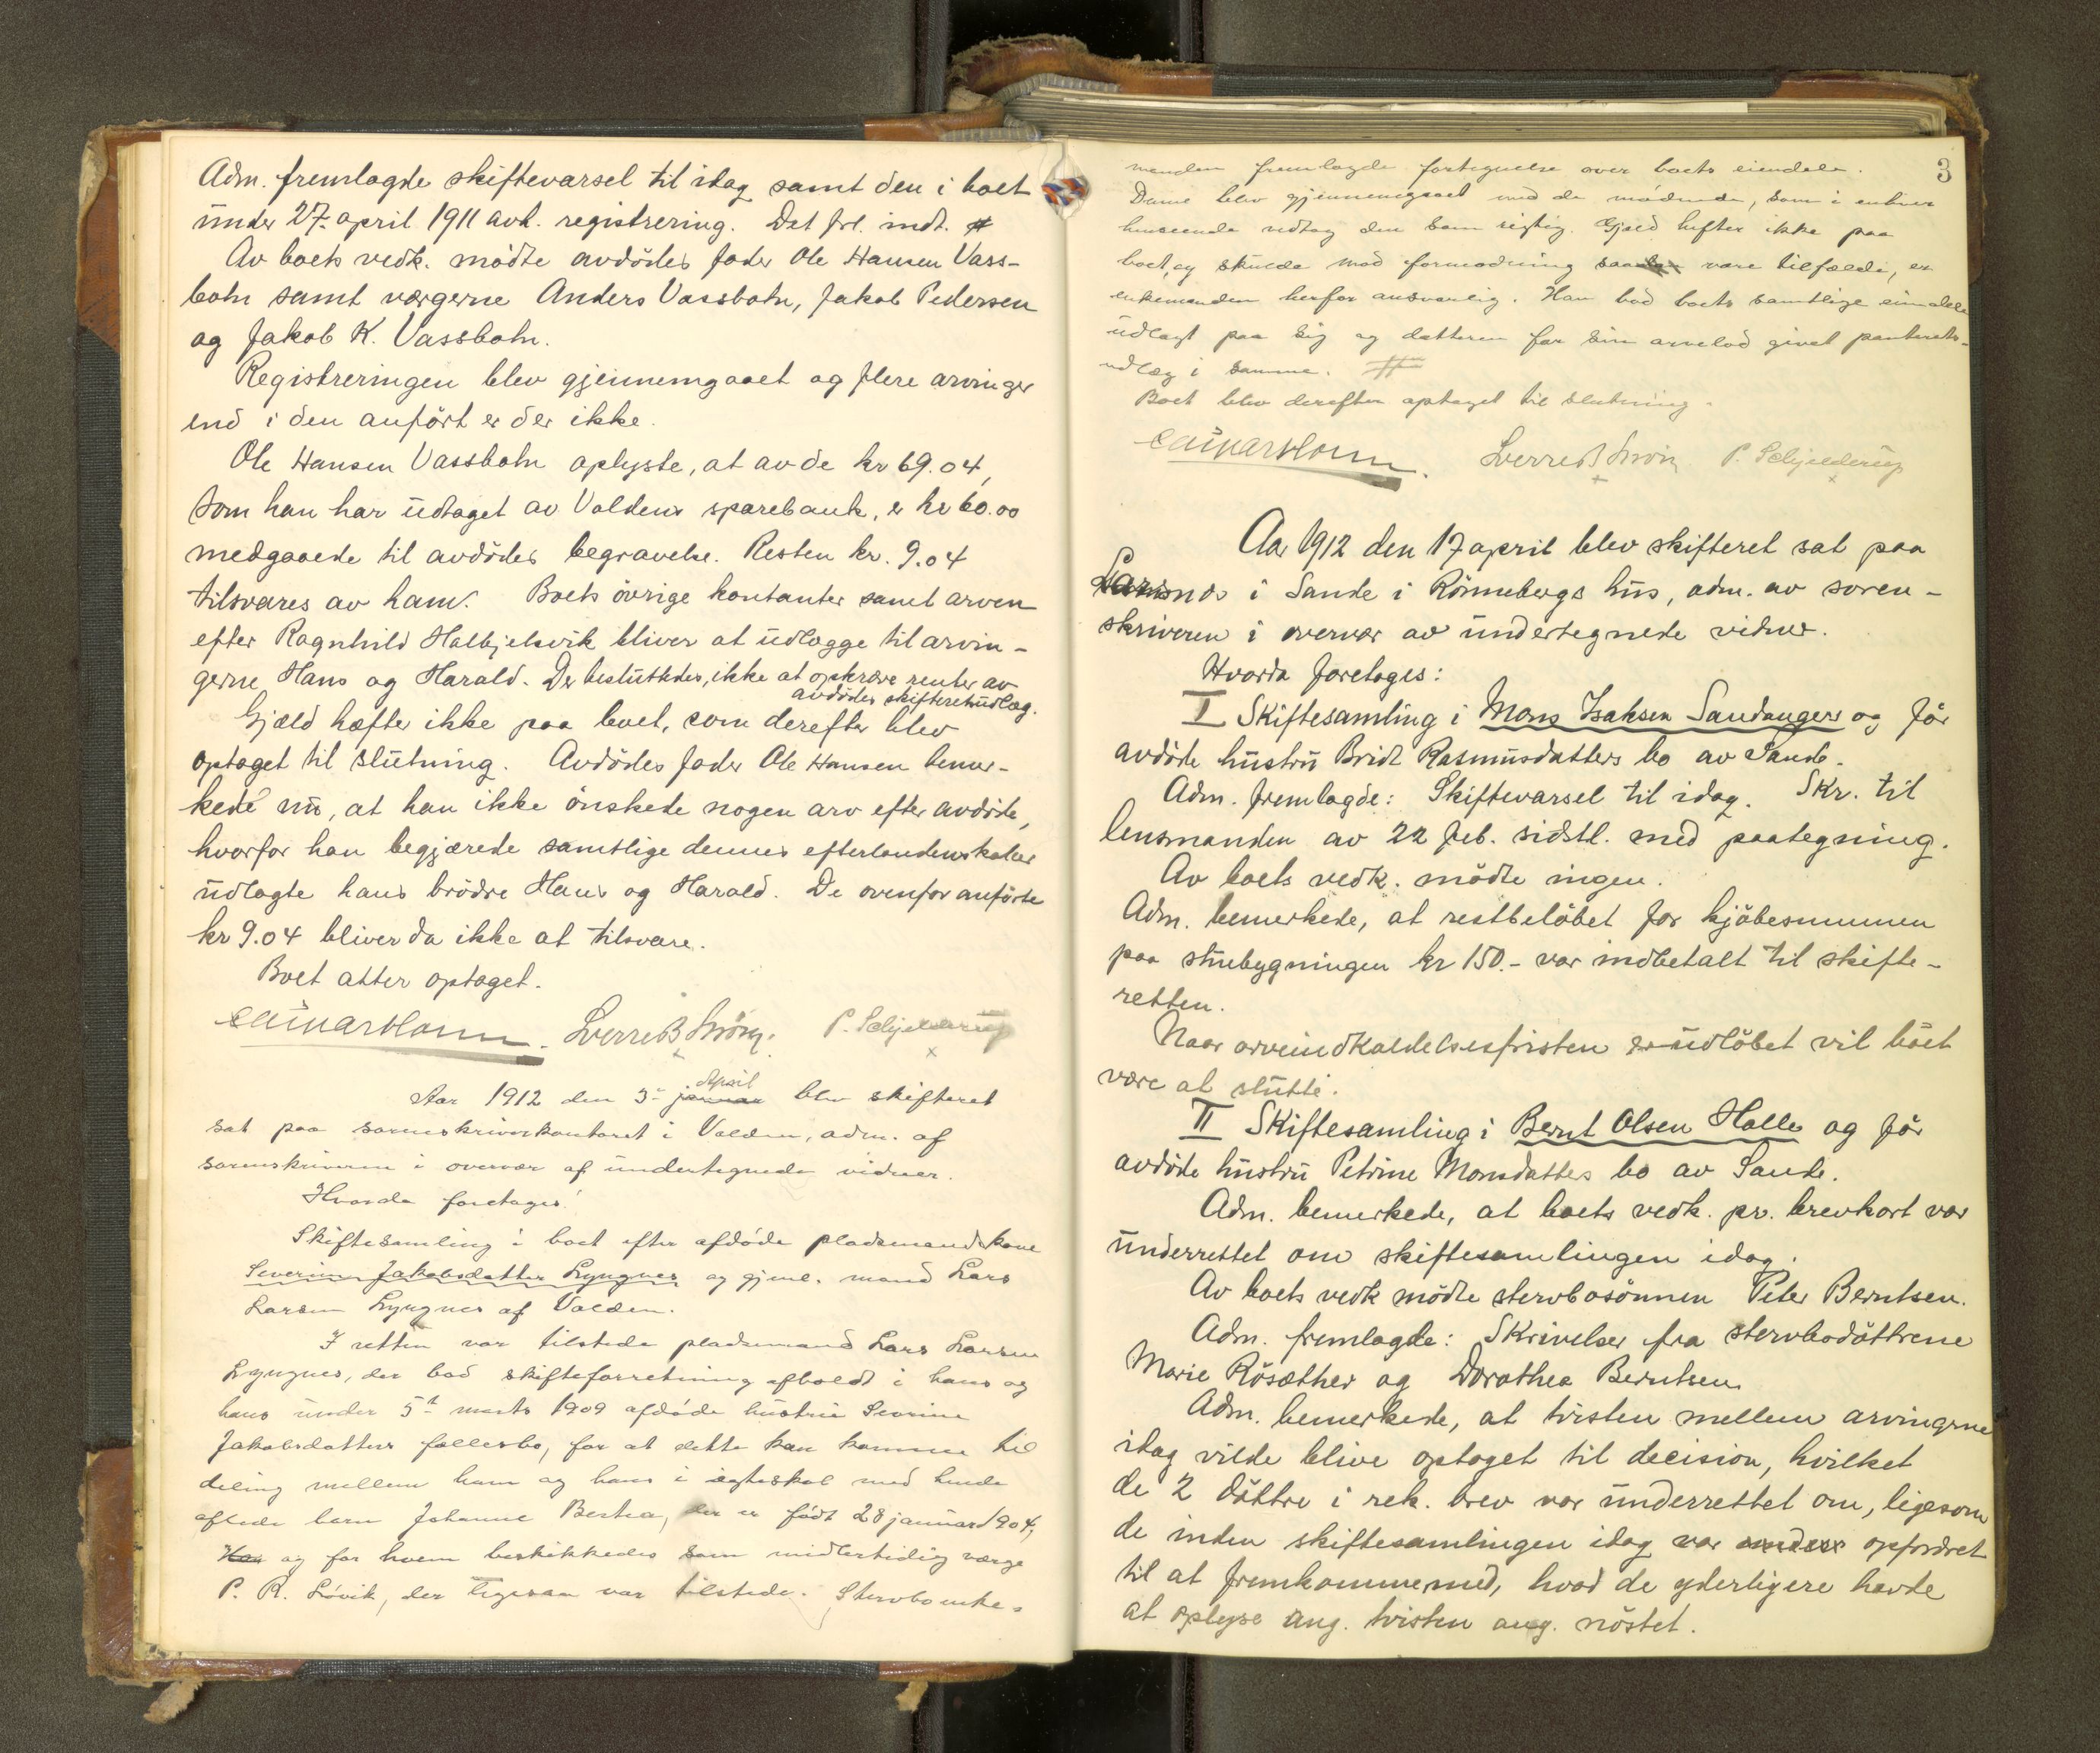 Adm. fremlagde skiftevarsel til idag samt den i boet
under 27. april 1911 avh. registrering. Det frl. indt.
Av boets vedk. mødte avdødes fader Ole Hansen Vass-
botn samt værgerne Anders Vassbotn, Jakob Pedersen
og Jakob K. Vassbotn.
Registreringen blev gjennemgaaet og flere arvinger
end i den anført er der ikke.
Ole Hansen Vassbotn oplyste, at av de kr 69.04,
som han har udtaget av Voldens sparebank, er kr 60.00
medgaaede til avdødes begravelse. Resten kr. 9.04
tilsvares av ham. Boets øvrige kontanter samt arven
efter Ragnhild Halkjelsvik bliver at udlægge til arvin-
gerne Hans og Harald. Der besluttedes, ikke at opkræve renter av
avdødes skifteretsudlæg.
Gjæld hæfter ikke paa boet, som derefter blev
optaget til slutning. Avdødes fader Ole Hansen bemer-
kede nu, at han ikke ønskede nogen arv efter avdøde,
hvorfor han begjærede samtlige dennes efterladenskaber
udlagte hans brødre Hans og Harald. De ovenfor anførte
kr 9.04 bliver da ikke at tilsvare.
Boet atter optaget.
Sverre B Strøm. P. Schjelderup
Aar 1912 den 3- januar April blev skifteret
sat paa sorenskriverkontoret i Volden, adm. af
sorenskriveren i overvær af undertegnede vidner.
Hvorda foretages:
Skiftesamling i boet efter afdøde pladsmandskone
Severine Jakobsdatter Lyngnes og gjenl. mand Lars
Larsen Lyngnes af Volden.
I retten var tilstede pladsmand Lars Larsen
Lyngnes, der bad skifteforretning afholdt i hans og
hans under 5te marts 1909 afdøde hustru Severine
Jakobsdatters fællesbo, for at dette kan komme til
deling mellem ham og hans i ægteskab med hende
aflede barn Johanne Bertea, der er født 28 januar 1904,
Han og for hvem beskikkedes som midlertidig værge
P. R. Løvik, der ligesaa var tilstede. Stervboenke-
3
manden fremlagde fortegnelse over boets eiendele.
Denne blev gjennemgaaet med de mødende, som i enhver
henseende vedtog den som rigtig. Gjæld hefter ikke paa
boet, og skulde mod formodning saa være tilfælde, er
enkemanden herfor ansvarlig. Han bad boets samtlige eiendele
udlagt paa sig og datteren for sin arvelod givet panterets-
udlæg i samme.
Boet blev derefter optaget til slutning.
Sverre B Strøm P. Schjelderup
Aar 1912 den 17 april blev skifteret sat paa
Larsnes i Sande i Rønnebergs hus, adm. av soren-
skriveren i overvær av undertegnede vidner.
Hvorda foretoges:
I Skiftesamling i Mons Isaksen Sandangers og før
avdøde hustru Bridt Rasmusdatters bo av Sande.
Adm. fremlagde: Skiftevarsel til idag. Skr. til
lensmanden av 22 feb. sidstl. med paategning.
Av boets vedk. mødte ingen.
Adm. bemerkede, at restbeløbet for kjøbesummen
paa stuebygningen kr 150.- var indbetalt til skifte-
retten.
Naar arveindkaldelsesfristen er udløbet vil boet
være at slutte.
II Skiftesamling i Bernt Olsen Halle og før
avdøde hustru Petrine Monsdatters bo av Sande.
Adm. bemerkede, at boets vedk. pr. brevkort var
underrettet om skiftesamlingen idag.
Av boets vedk mødte stervbosønnen Peter Berntsen.
Adm. fremlagde: Skrivelser fra stervbodøttrene
Marie Røsæther og Dorothea Berntsen
Adm. bemerkede, at tvisten mellem arvingerne
idag vilde blive optaget til decision, hvilket
de 2 døttre i rek. brev var underrettet om, ligesom
de inden skiftesamlingen idag var opfordret
til at fremkomme med, hvad de yderligere havde
at oplyse ang. tvisten ang. nøstet.